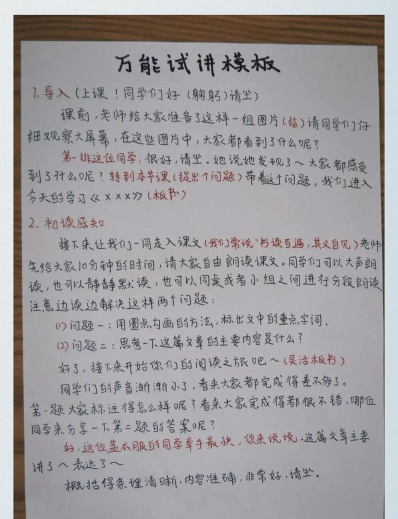 万能试讲模板
1. 导入(上课!同学们好(躬躬)请坐)
课前,老师给大家准备了这样一组图片(指)请同学们仔
细观察大屏幕,在这些图片中,大家都看到了什么呢?
第一排这位同学.很好,请坐。她说她发现了~大家都感受
到了什么呢?转到本节课(提出个问题)带着这个问题,我们进入
今天的学习《×××》(板书)
2. 初读感知
接下来让我们一同走入课文(我们常说"书读百遍,其义自见)老师
先给大家10分钟的时间,请大家自由朗读课文。同学们可以大声朗
读,也可以静静默读,也可以同桌或者小组之间进行分段朗读,
注意边读边解决这样两个问题:
(1)问题一:用圈点勾画的方法,标出文中的重点字词.
(2)问题二:思考一下这篇文章的主要内容是什么?
好了,接下来开始你们的阅读之旅吧~(灵活板书)
同学们的声音渐渐小了,看来大家都完成得差不多了。
第一题大家标注得怎么样呢?看来大家完成得都很不错,哪位
同学来分享一下第二题的答案呢?
好,这位蓝衣服的同学举手最快,你来说说.这篇文章主要
讲了~表达了~
概括得条理清晰,内容准确,非常好,请坐。